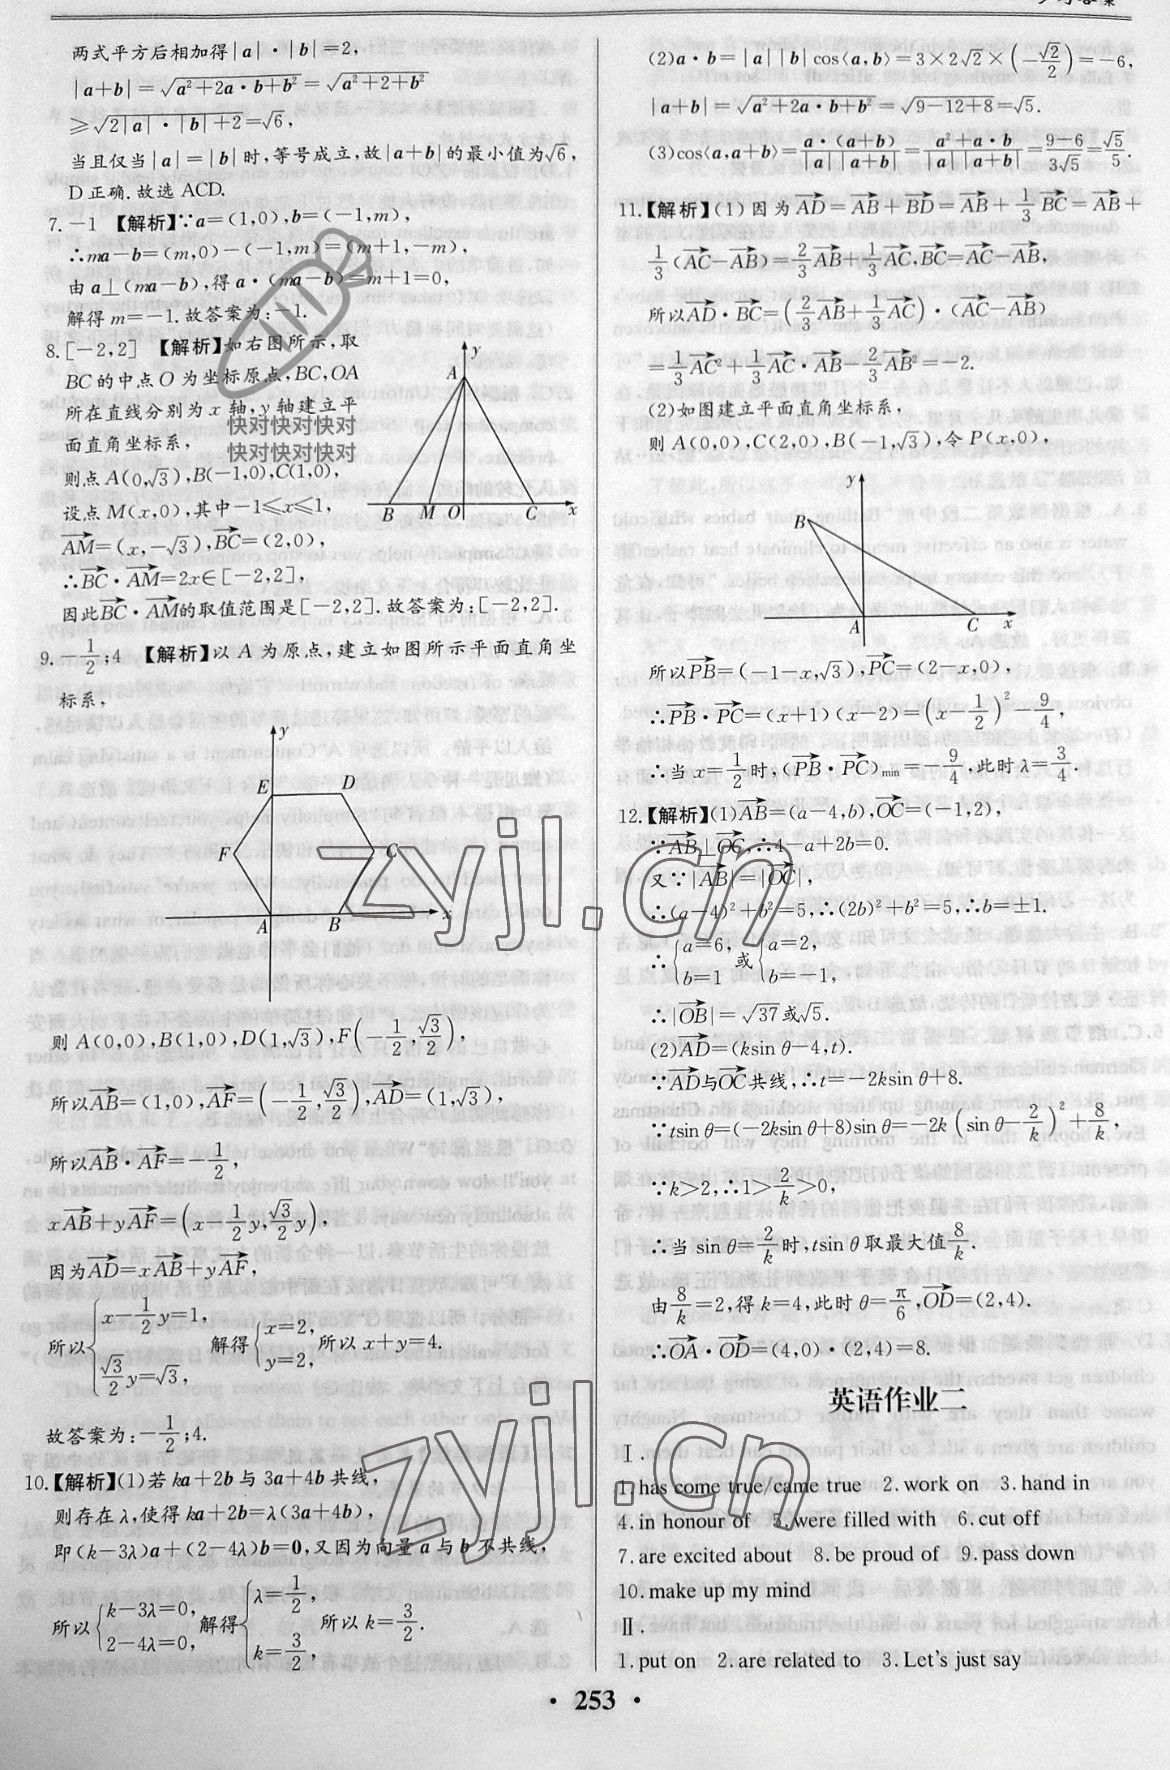 两式平方后相加得|a|·|b|=2,
|a+b|=√(a²+2a·b+b²)=√(a²+2+b²)
≥√(2|a|·|b|+2)=√6,
当且仅当|a|=|b|时,等号成立,故|a+b|的最小值为√6,
D正确.故选ACD.
7.-1 【解析】∵a=(1,0),b=(-1,m),
∴ma-b=(m,0)-(-1,m)=(m+1,-m),
由a⊥(ma-b),得a·(ma-b)=m+1=0,
解得m=-1.故答案为:-1.
8.[-2,2] 【解析】如右图所示,取
BC的中点O为坐标原点,BC,OA
所在直线分别为x轴,y轴建立平
面直角坐标系,
则点A(0,√3),B(-1,0),C(1,0),
设点M(x,0),其中-1≤x≤1,
AM→=(x,-√3),BC→=(2,0),
∴BC→·AM→=2x∈[-2,2],
因此BC→·AM→的取值范围是[-2,2].故答案为:[-2,2].
y
A
B M O C x
快对快对快对
快对快对快对
9.-1/2;4 【解析】以A为原点,建立如图所示平面直角坐
标系,
y
E D
F C
A B x
则A(0,0),B(1,0),D(1,√3),F(-1/2,√3/2),
所以AB→=(1,0),AF→=(-1/2,√3/2),AD→=(1,√3),
所以AB→·AF→=-1/2,
xAB→+yAF→=(x-1/2y,√3/2y),
因为AD→=xAB→+yAF→,
所以{x-1/2y=1, √3/2y=√3, 解得{x=2, y=2, 所以x+y=4.
故答案为:-1/2;4.
10.【解析】(1)若ka+2b与3a+4b共线,
则存在λ,使得ka+2b=λ(3a+4b),
即(k-3λ)a+(2-4λ)b=0,又因为向量a与b不共线,
所以{k-3λ=0, 2-4λ=0, 解得{λ=1/2, k=3/2, 所以k=3/2.
(2)a·b=|a||b|cos⟨a,b⟩=3×2√2×(-√2/2)=-6,
|a+b|=√(a²+2a·b+b²)=√(9-12+8)=√5.
(3)cos⟨a,a+b⟩=a·(a+b)/|a||a+b|=(a²+a·b)/|a||a+b|=(9-6)/3√5=√5/5.
11.【解析】(1)因为AD→=AB→+BD→=AB→+1/3BC→=AB→+
1/3(AC→-AB→)=2/3AB→+1/3AC→,BC→=AC→-AB→,
所以AD→·BC→=(2/3AB→+1/3AC→)·(AC→-AB→)
=1/3AC→²+1/3AC→·AB→-2/3AB→²=-2.
(2)如图建立平面直角坐标系,
则A(0,0),C(2,0),B(-1,√3),令P(x,0),
y
B
A C x
所以PB→=(-1-x,√3),PC→=(2-x,0),
∴PB→·PC→=(x+1)(x-2)=(x-1/2)²-9/4,
∴当x=1/2时,(PB→·PC→)min=-9/4,此时λ=3/4.
12.【解析】(1)AB→=(a-4,b),OC→=(-1,2),
∵AB→⊥OC→,∴4-a+2b=0.
又∵|AB→|=|OC→|,
∴(a-4)²+b²=5,∴(2b)²+b²=5,∴b=±1.
∴{a=6, b=1 或{a=2, b=-1,
∴|OB→|=√37或√5.
(2)AD→=(ksin θ-4,t).
∵AD→与OC→共线,∴t=-2ksin θ+8.
∵tsin θ=(-2ksin θ+8)sin θ=-2k(sin θ-2/k)²+8/k,
∵k>2,∴1>2/k>0,
∴当sin θ=2/k时,tsin θ取最大值8/k.
由8/k=2,得k=4,此时θ=π/6,OD→=(2,4).
∴OA→·OD→=(4,0)·(2,4)=8.
英语作业二
Ⅰ.
1. has come true/came true 2. work on 3. hand in
4. in honour of 5. were filled with 6. cut off
7. are excited about 8. be proud of 9. pass down
10. make up my mind
Ⅱ.
1. put on 2. are related to 3. Let's just say
zyjl.cn
zyjl.cn
· 253 ·